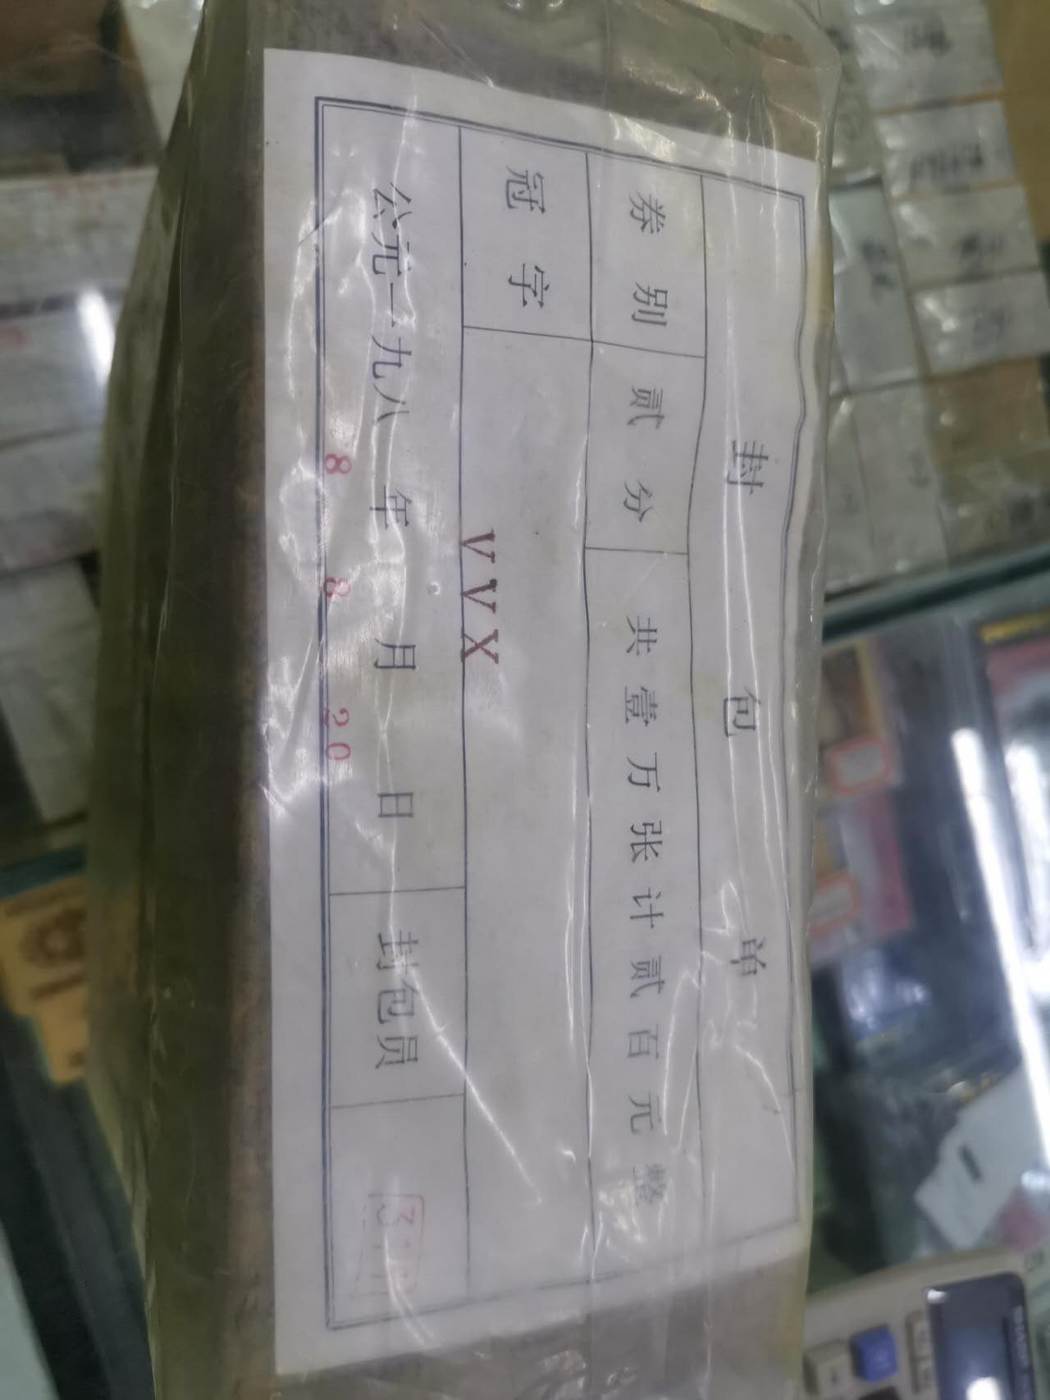 封包单
券别 贰分 共壹万张计贰百元整
冠字 VVX
公元一九八 年 月 日 封包员
8 8 20